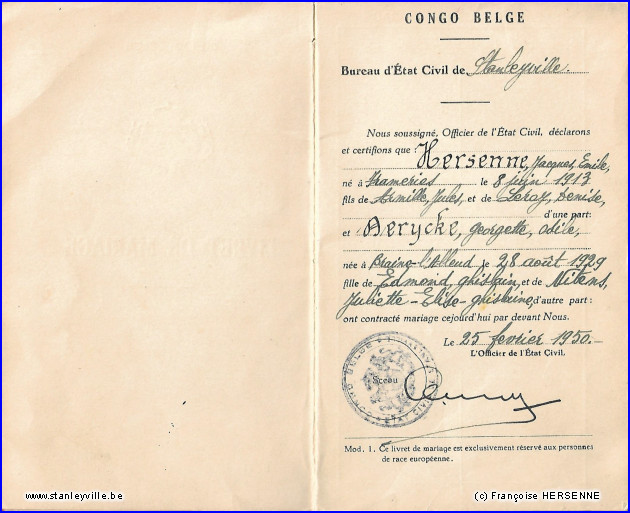 CONGO BELGE
Bureau d'État Civil de Stanleyville.
Nous soussigné, Officier de l'État Civil, déclarons
et certifions que : Hersenne, Jacques, Emile,
né à Frameries le 8 juin 1913
fils de Armille, Jules, et de Leroy, Denise,
d'une part:
et Aerycke, Georgette, Odile,
née à Braine-l'Alleud le 28 août 1929
fille de Edmond, Ghislain, et de Nitens,
Juliette-Elise-Ghislaine, d'autre part :
ont contracté mariage cejourd'hui par devant Nous.
Le 25 fevrier 1950.-
L'Officier de l'État Civil.
Sceau
CONGO BELGE
ETAT CIVIL
Mod. 1. Ce livret de mariage est exclusivement réservé aux personnes
de race européenne.
www.stanleyville.be
(c) Françoise HERSENNE